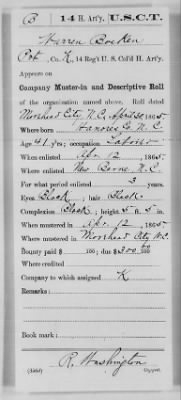 B | 14 H. Art'y. | U.S.C.T.
Warren Borken
Pvt, Co. K, 14 Reg't U. S. Col'd H. Art'y.
Appears on
Company Muster-in and Descriptive Roll
of the organization named above. Roll dated
Morehead City, N.C., April 30, 1865.
Where born Hanover Co. N.C.
Age 41 y'rs; occupation Laborer
When enlisted Apr. 12, 1865.
Where enlisted New Berne, N.C.
For what period enlisted 3 years.
Eyes Black; hair Black
Complexion Black; height 5 ft. 5 in.
When mustered in Apr. 12, 1865.
Where mustered in Morehead City, N.C.
Bounty paid $ 100; due $ 300 00/100
Where credited
Company to which assigned K
Remarks:
Book mark:
R. Washington
Copyist.